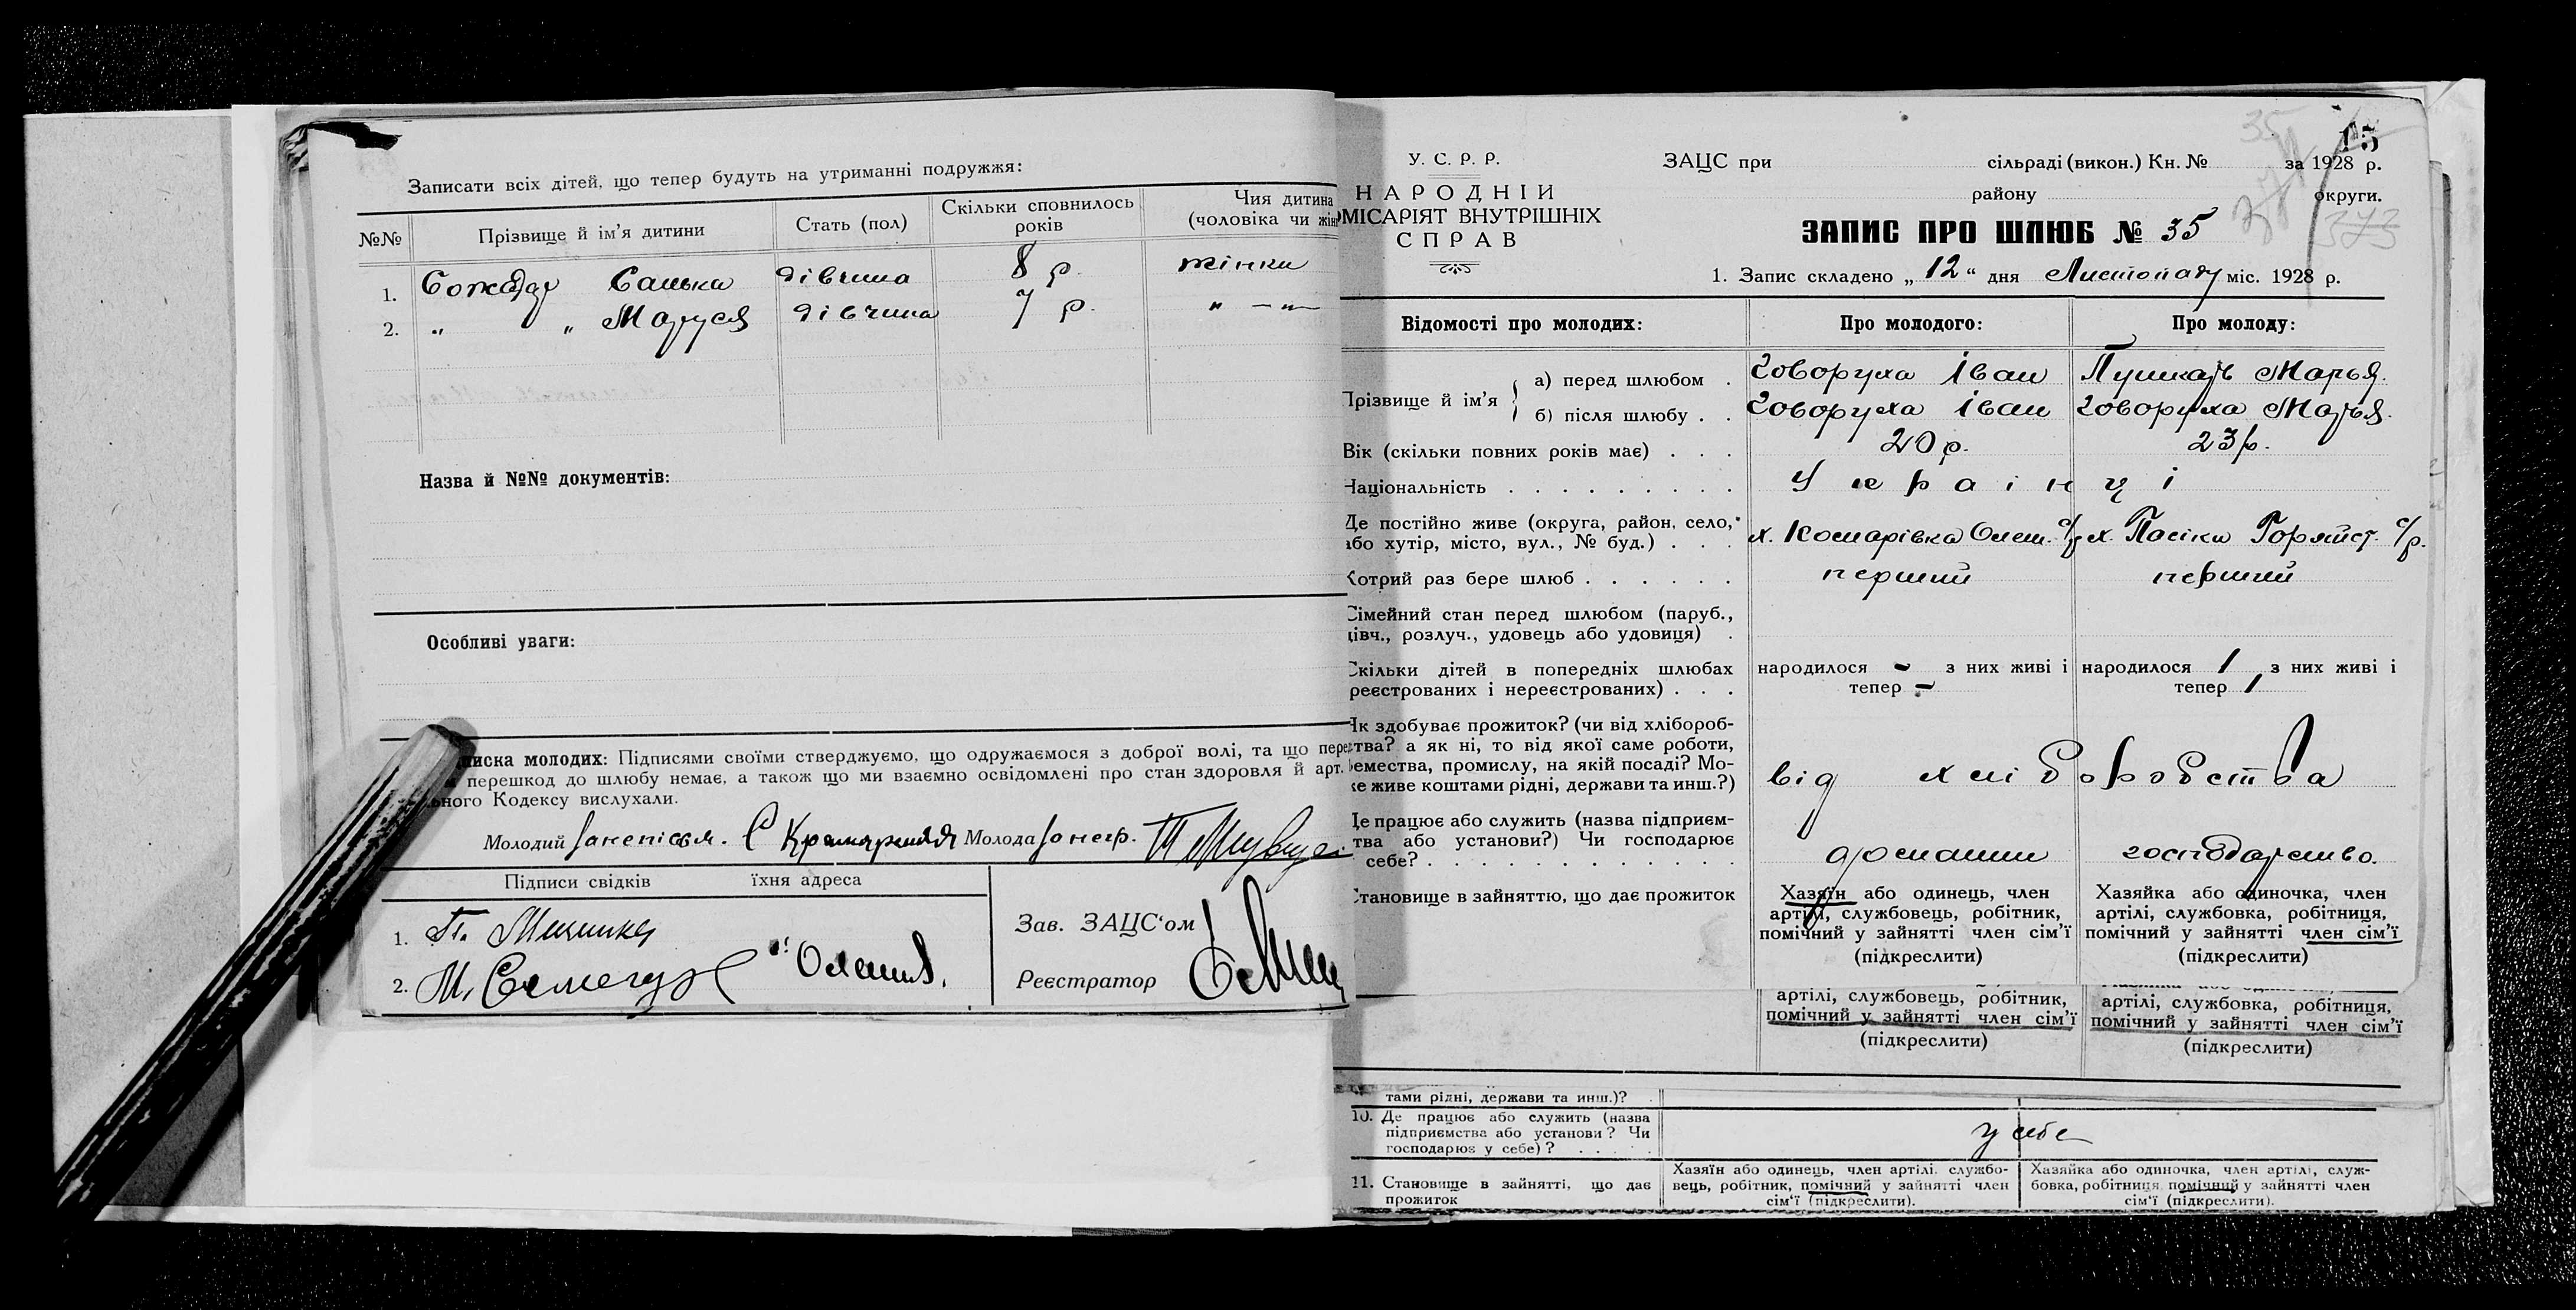 Записати всіх дітей, що тепер будуть на утриманні подружжя:
№№ Прізвище й ім'я дитини Стать (пол) Скільки сповнилось років Чия дитина (чоловіка чи жін
1. Санька дівчина 8 р. жінки
2. „ „ Маруся дівчина 7 р. „ — „
Назва й №№ документів:
Особливі уваги:
писка молодих: Підписями своїми стверджуємо, що одружаємося з доброї волі, та що пере
перешкод до шлюбу немає, а також що ми взаємно освідомлені про стан здоровля й арт.
ьного Кодексу вислухали.
Молодий Молода
Підписи свідків їхня адреса
1.
2. М.
Зав. ЗАЦС'ом
Реєстратор
35
15
У. С. Р. Р.
НАРОДНІЙ
ОМІСАРІЯТ ВНУТРІШНІХ
СПРАВ
ЗАЦС при сільраді (викон.) Кн. № за 1928 р.
району округи.
373
ЗАПИС ПРО ШЛЮБ № 35
1. Запис складено „ 12 “ дня Листопаду міс. 1928 р.
Відомості про молодих: Про молодого: Про молоду:
Прізвище й ім'я
а) перед шлюбом . Говоруха Іван Пушкарь Марья.
б) після шлюбу . . Говоруха Іван Говоруха Марья.
Вік (скільки повних років має) . . . 20 р. 23 р.
Національність . . . . . . . . . Українці
Де постійно живе (округа, район, село,
або хутір, місто, вул., № буд.) . . . х. Комарівка Олеш. с/р х. Пасіки с/р.
Котрий раз бере шлюб . . . . . . перший перший
Сімейний стан перед шлюбом (паруб.,
дівч., розлуч., удовець або удовиця) .
Скільки дітей в попередніх шлюбах
реєстрованих і нереєстрованих) . . .
народилося - з них живі і
тепер -
народилося 1 з них живі і
тепер 1
Як здобуває прожиток? (чи від хлібороб-
тва? а як ні, то від якої саме роботи,
емества, промислу, на якій посаді? Мо-
же живе коштами рідні, держави та инш.?)
від хліборобства
Де працює або служить (назва підприєм-
тва або установи?) Чи господарює
себе? . . . . . . . . . . . . .
домашнє господарство.
Становище в зайняттю, що дає прожиток
Хазяїн або одинець, член
артілі, службовець, робітник,
помічний у зайнятті член сім'ї
(підкреслити)
Хазяйка або одиночка, член
артілі, службовка, робітниця,
помічний у зайнятті член сім'ї
(підкреслити)
артілі, службовець, робітник,
помічний у зайнятті член сім'ї
(підкреслити)
артілі, службовка, робітниця,
помічний у зайнятті член сім'ї
(підкреслити)
тами рідні, держави та инш.)?
10. Де працює або служить (назва
підприємства або установи? Чи
господарює у себе)? . . . . .
у себе
11. Становище в зайнятті, що дає
прожиток
Хазяїн або одинець, член артілі, службо-
вець, робітник, помічний у зайнятті член
сім'ї (підкреслити).
Хазяйка або одиночка, член артілі, служ-
бовка, робітниця, помічний у зайнятті член
сім'ї (підкреслити).